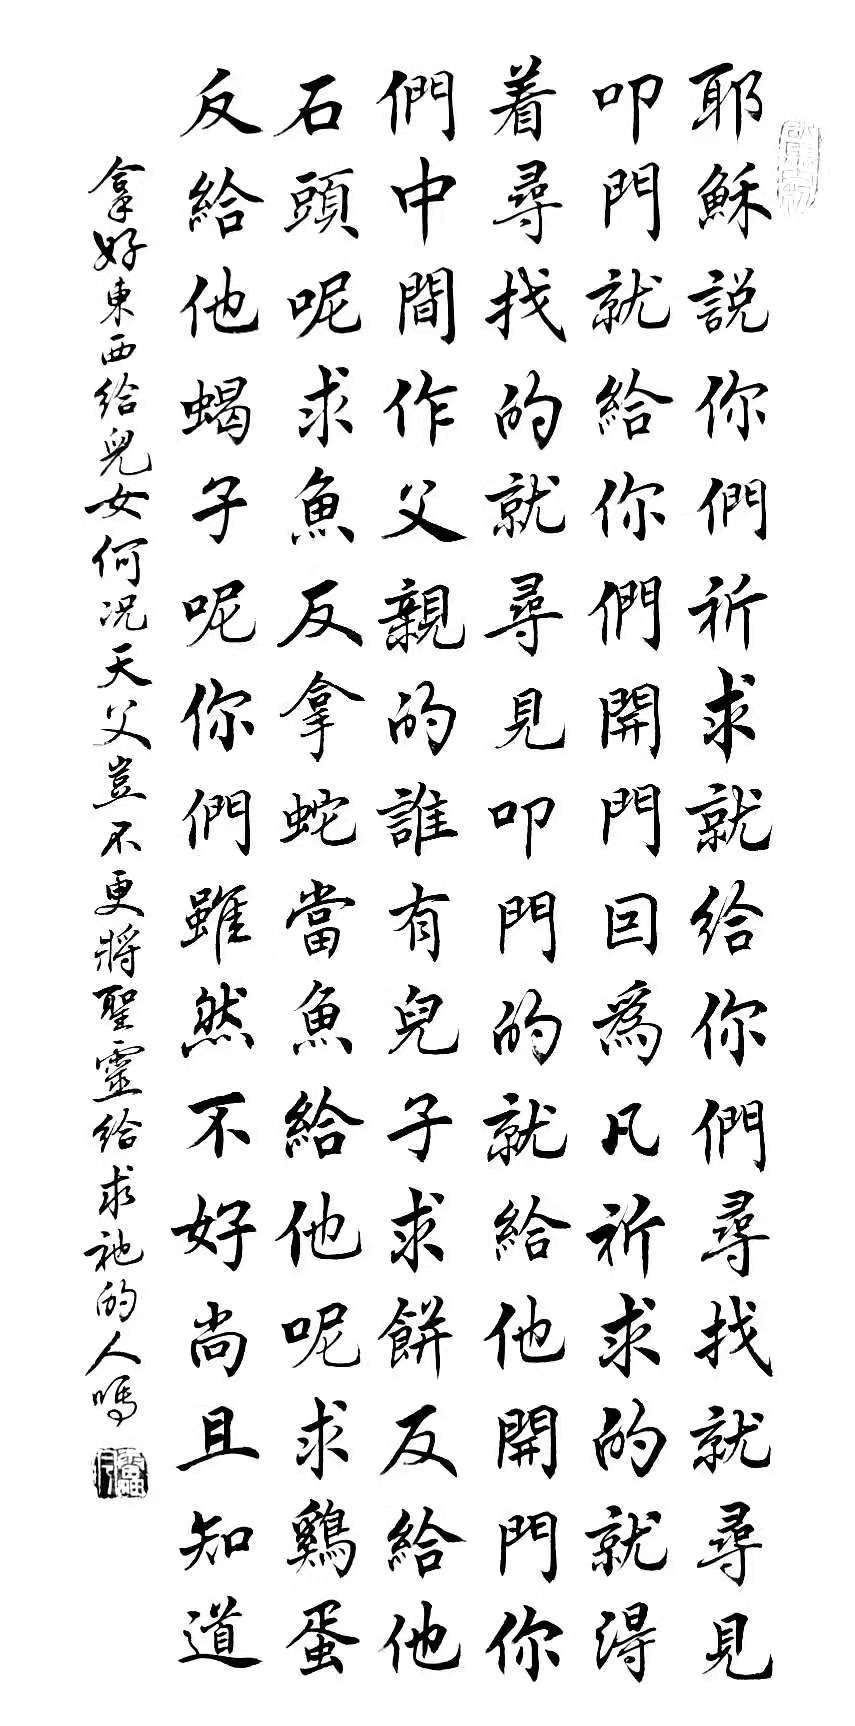 耶穌説你們祈求就給你們尋找就尋見
叩門就給你們開門因爲凡祈求的就得
着尋找的就尋見叩門的就給他開門你
們中間作父親的誰有兒子求餅反給他
石頭呢求魚反拿蛇當魚給他呢求鷄蛋
反給他蝎子呢你們雖然不好尚且知道
拿好東西給兒女何况天父豈不更將聖靈給求祂的人嗎